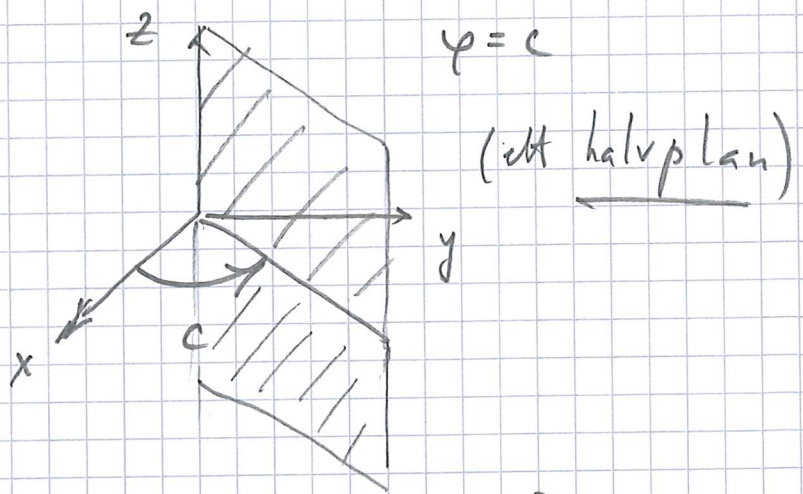 z
φ = c
(ett halvplan)
y
c
x